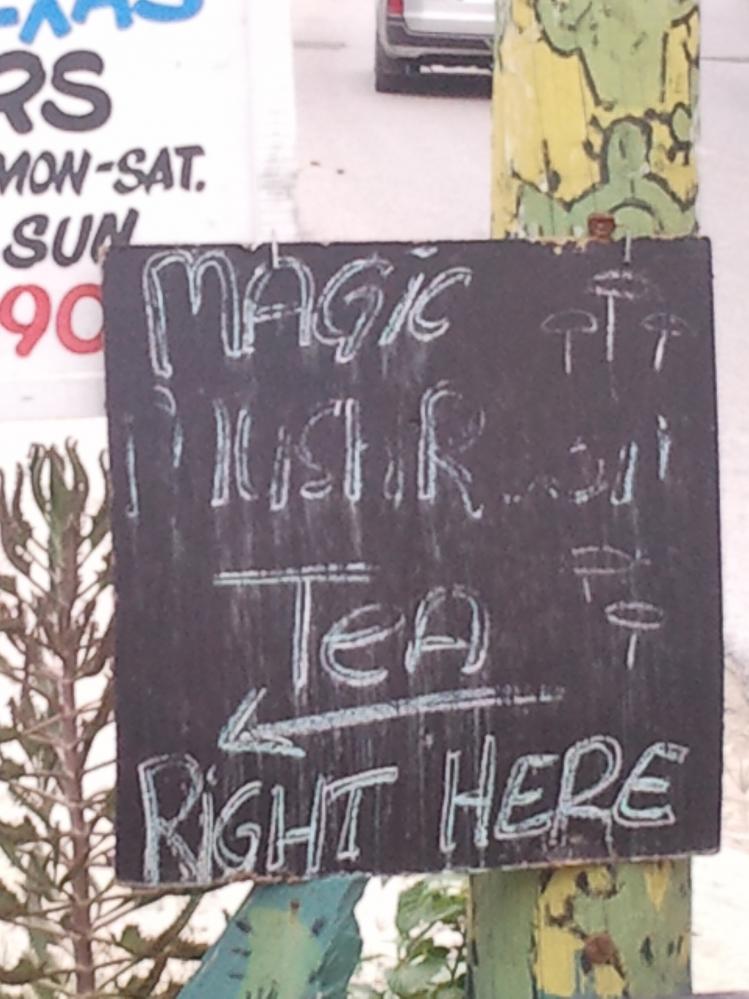 MON-SAT.
SUN
90
MAGiC
TeA
RiGHT HERE